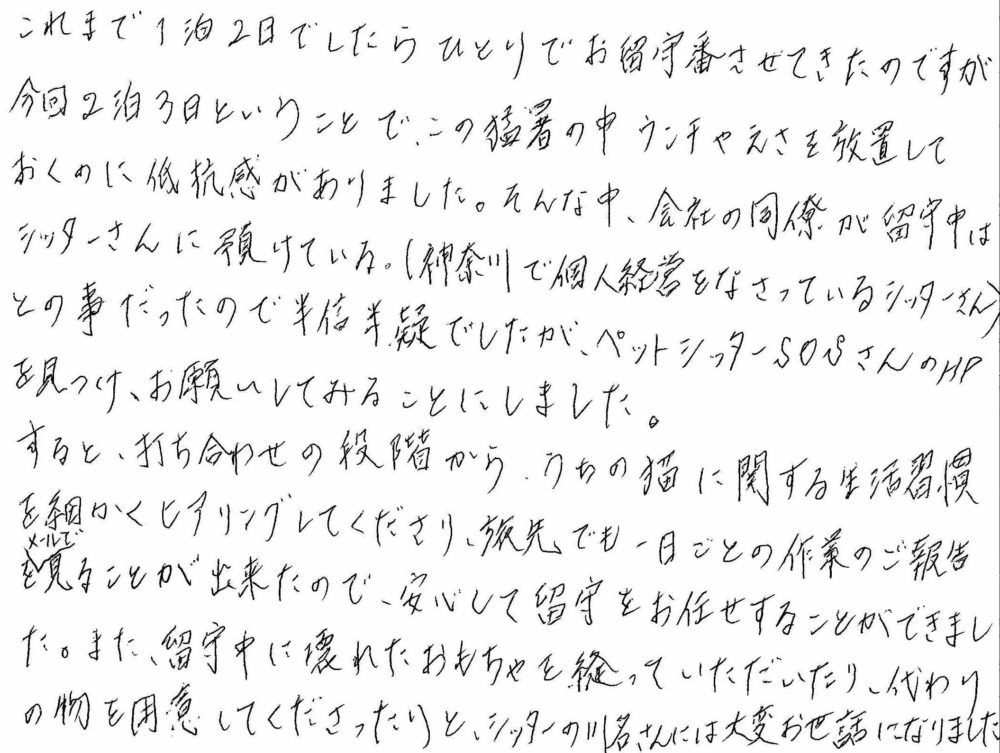 これまで1泊2日でしたらひとりでお留守番させてきたのですが
今回2泊3日ということで、この猛暑の中ウンチやえさを放置して
おくのに低抗感がありました。そんな中、会社の同僚が留守中は
シッターさんに預けている。(神奈川で個人経営をなさっているシッターさん)
との事だったので半信半疑でしたが、ペットシッターSOSさんのHP
を見つけ、お願いしてみることにしました。
すると、打ち合わせの段階から、うちの猫に関する生活習慣
を細かくヒアリングしてくださり、旅先でも一日ごとの作業のご報告
を メールで 見ることが出来たので、安心して留守をお任せすることができまし
た。また、留守中に壊れたおもちゃを縫っていただいたり、代わり
の物を用意してくださったりと、シッターの川名さんには大変お世話になりました